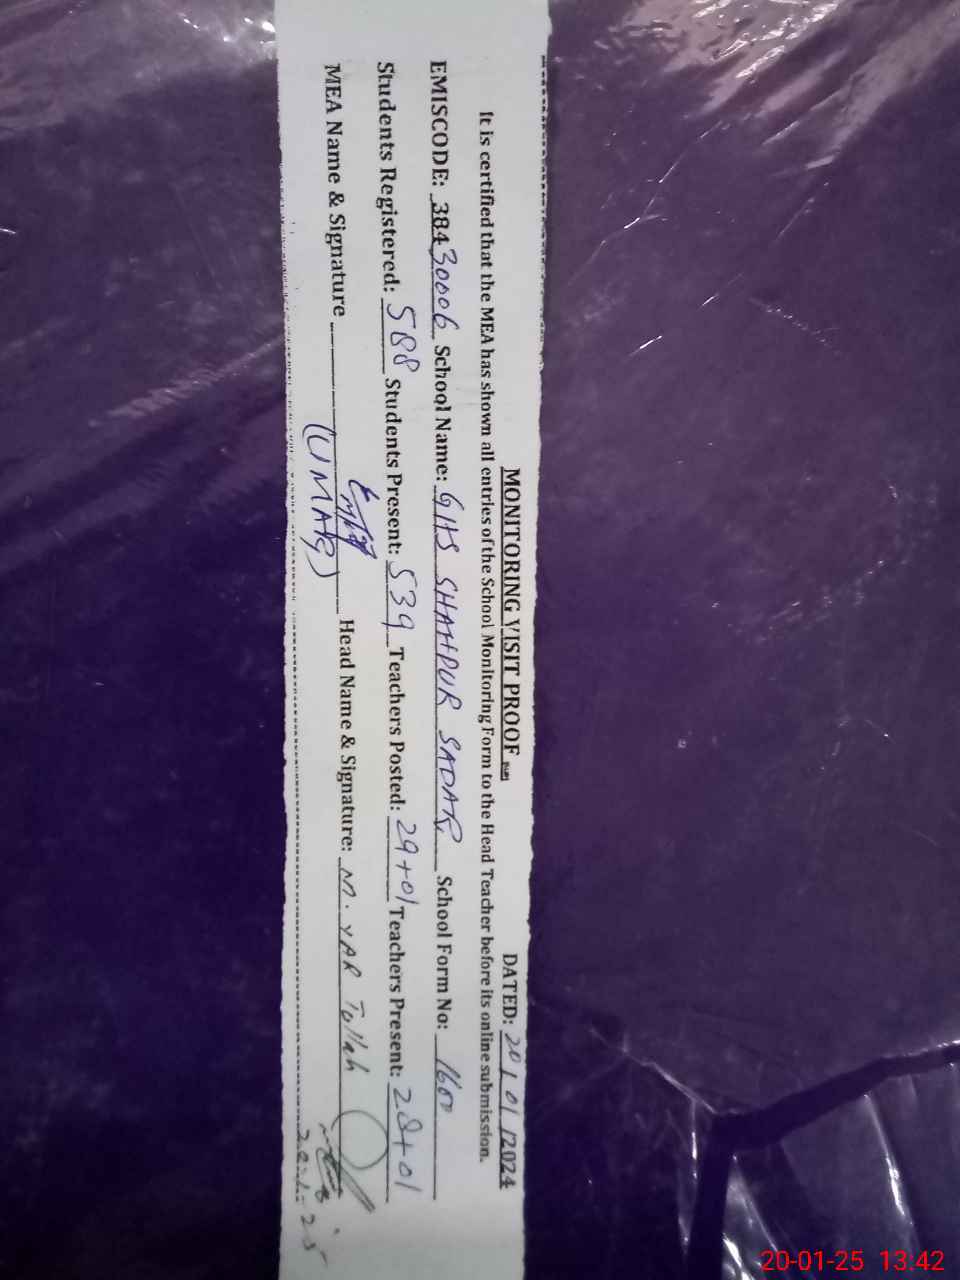 MONITORING VISIT PROOF DATED: 20/01/2024
It is certified that the MEA has shown all entries of the School Monitoring Form to the Head Teacher before its online submission.
EMISCODE: 38430006 School Name: GHS SHAHPUR SADAR School Form No: 160
Students Registered: 588 Students Present: 539 Teachers Posted: 29+01 Teachers Present: 28+01
MEA Name & Signature Head Name & Signature: M. YAR Tullah
(UMAR)
20-01-25 13:42